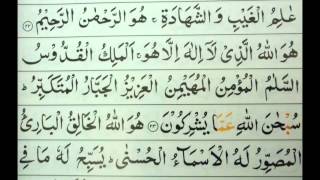 عٰلِمُ الْغَيْبِ وَالشَّهَادَةِ ۚ هُوَ الرَّحْمٰنُ الرَّحِيْمُ ﴿۲۲﴾
هُوَ اللّٰهُ الَّذِىْ لَاۤ اِلٰهَ اِلَّا هُوَ ۚ اَلْمَلِكُ الْقُدُّوْسُ
السَّلٰمُ الْمُؤْمِنُ الْمُهَيْمِنُ الْعَزِيْزُ الْجَبَّارُ الْمُتَكَبِّرُ ؕ
سُبْحٰنَ اللّٰهِ عَمَّا يُشْرِكُوْنَ ﴿۲۳﴾ هُوَ اللّٰهُ الْخَالِقُ الْبَارِئُ
الْمُصَوِّرُ لَهُ الْاَسْمَآءُ الْحُسْنٰى ؕ يُسَبِّحُ لَهٗ مَا فِى